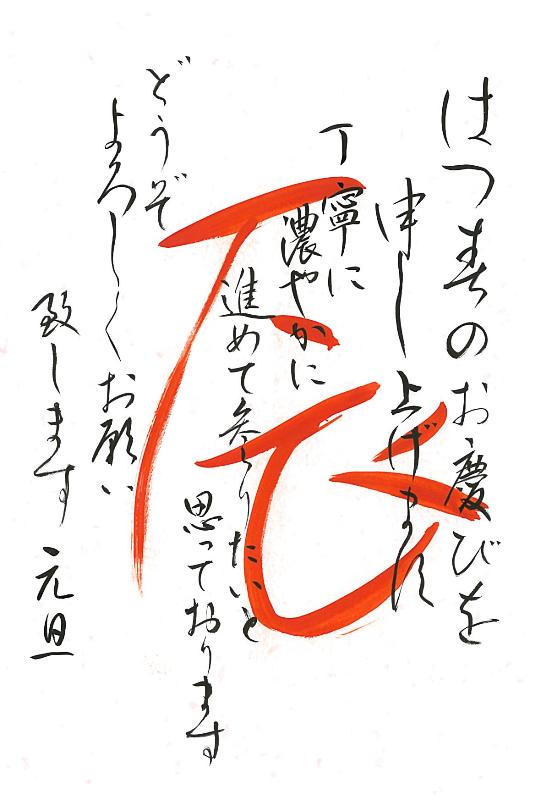 はつ春のお慶びを
申し上げます
丁寧に
濃やかに
進めて参りたいと
思っております
どうぞ
よろしくお願い
致します 元旦
辰